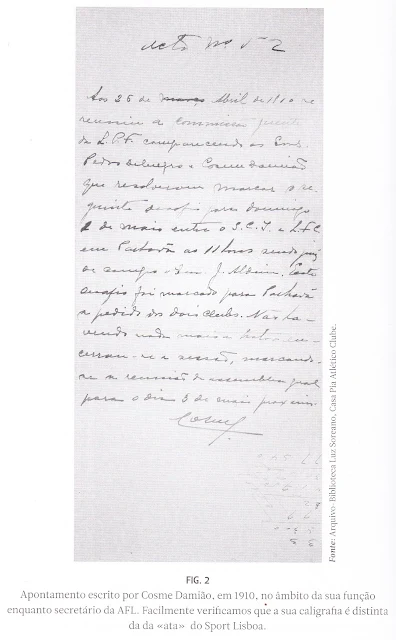 Acta Nº 52
Aos 26 de março Abril de 1910 se
reuniu a commissão
da L.P.F. comparecendo os Snrs.
Pedro del Negro e Cosme Damião
que resolveram marcar o se-
guinte desafio para domingo
1 de maio entre o S.C.I. e L.F.C
em Palhavã ás 11 horas sendo juiz
de campo o Snr. J. Este
desafio foi marcado para Palhavã
a pedido dos dois clubs. Não ha-
vendo nada mais a tratar en-
cerrou-se a sessão, marcando-
se a reunião da assemblea geral
para o dia 3 de maio proximo.
Cosme
Fonte: Arquivo-Biblioteca Luz Soreano, Casa Pia Atlético Clube.
FIG. 2
Apontamento escrito por Cosme Damião, em 1910, no âmbito da sua função
enquanto secretário da AFL. Facilmente verificamos que a sua caligrafia é distinta
da da «ata» do Sport Lisboa.